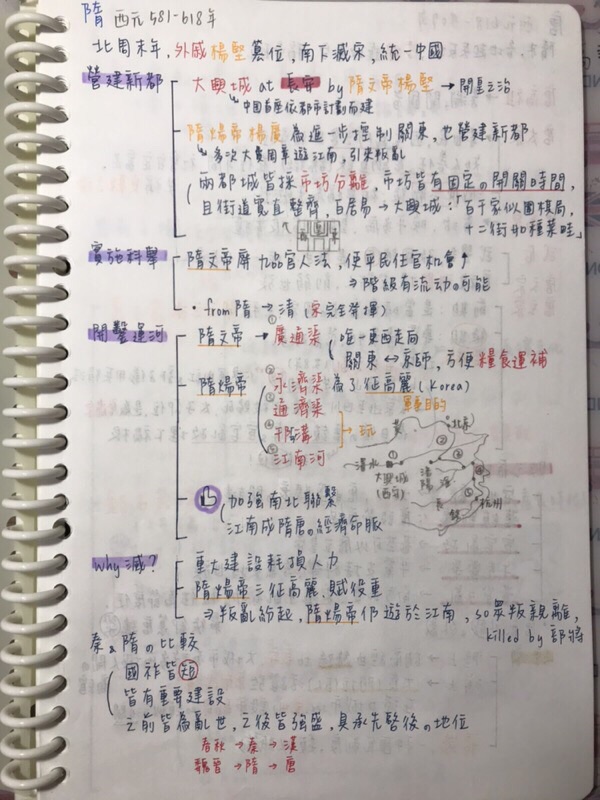 隋 西元581-618年
北周末年,外戚楊堅篡位,南下滅宋,統一中國
營建新都
大興城 at 長安 by 隋文帝楊堅 → 開皇之治
↳中國首座依都市計劃而建
隋煬帝楊廣為進一步控制關東,也營建新都
↳多次大費周章遊江南,引來叛亂
兩都城皆採市坊分離,市坊皆有固定の開關時間,
且街道寬直整齊,白居易→大興城:「百千家似圍棋局,
十二街如種菜畦」
實施科舉
隋文帝屏九品官人法,使平民任官机會↑
⇒階級有流动の可能
・from隋→清(宋完全發揮)
開鑿運河
隋文帝 → ①廣通渠
唯一東西走向
關東↔京師,方便糧食運補
隋煬帝
②永濟渠 為了征高麗(Korea)
軍事目的
③通濟渠
④邗溝
⑤江南河
北京
渭水
大興城
(西安)
洛陽
杭州
加強南北聯繫
江南成隋唐の經濟命脈
why滅?
重大建設耗損人力
隋煬帝三征高麗,賦役重
⇒叛亂紛起,隋煬帝仍遊於江南,so眾叛親離,
killed by 部將
秦&隋の比較
國祚皆短
皆有重要建設
之前皆為亂世,之後皆強盛,具承先啓後の地位
春秋→秦→漢
魏晉→隋→唐